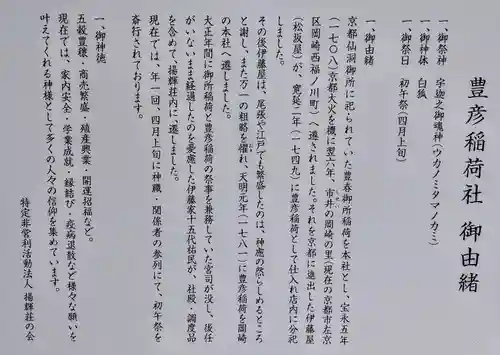 豊彦稲荷社 御由緒
一、御祭神 宇迦之御魂神(ウカノミタマノカミ)
一、御神体 白狐
一、御祭日 初午祭(四月上旬)
一、御由緒
京都仙洞御所に祀られていた豊春御所稲荷を本社とし、宝永五年
(一七〇八)京都大火を機に翌六年、市井の岡崎の里(現在の京都市左京
区岡崎西福ノ川町)へ遷されました。それを京都に進出した伊藤屋
(松坂屋)が、寛延二年(一七四九)に豊彦稲荷として仕入れ店内に分祀
しました。
その後伊藤屋は、尾張や江戸でも繁盛したのは、神慮の然らしめるところ
と謝し、また万一の粗略を懼れ、天明元年(一七八一)に豊彦稲荷を岡崎
の本社へ遷しました。
大正年間に御所稲荷と豊彦稲荷の祭事を兼務していた宮司が没し、後任
がいないまま経過したのを憂慮した伊藤家十五代祐民が、社殿・調度品
を含めて、揚輝荘内に遷しました。
現在では、年一回、四月上旬に神職・関係者の参列にて、初午祭を
斎行されております。
一、御神徳
五穀豊穣・商売繁盛・殖産興業・開運招福など。
現在では、家内安全・学業成就・縁結び・疫病退散など様々な願いを
叶えてくれる神様として多くの人々の信仰を集めています。
特定非営利活動法人 揚輝荘の会